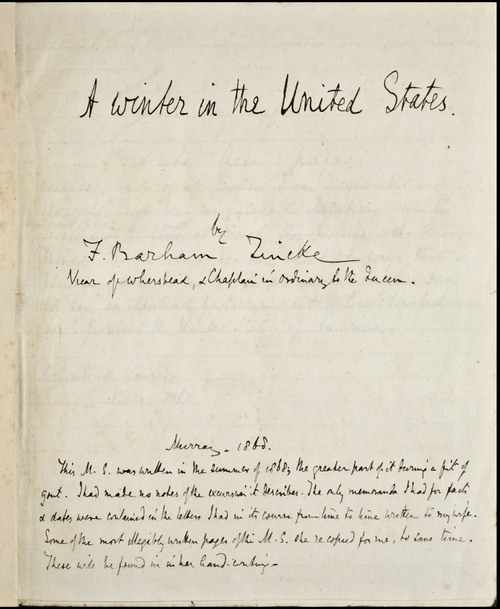 A winter in the United States.
by
F. Barham Zincke
Vicar of Wherstead, & Chaplain in ordinary to the Queen.
Murray - 1868.
This M.S. was written in the summer of 1868; the greater part of it during a fit of
gout. I had made no notes of the excursion it describes. The only memoranda I had for facts
& dates were contained in the letters I had in its course from time to time written to my wife.
Some of the most illegibly written pages of this M.S. she recopied for me, to save time.
These will be found in her hand-writing -